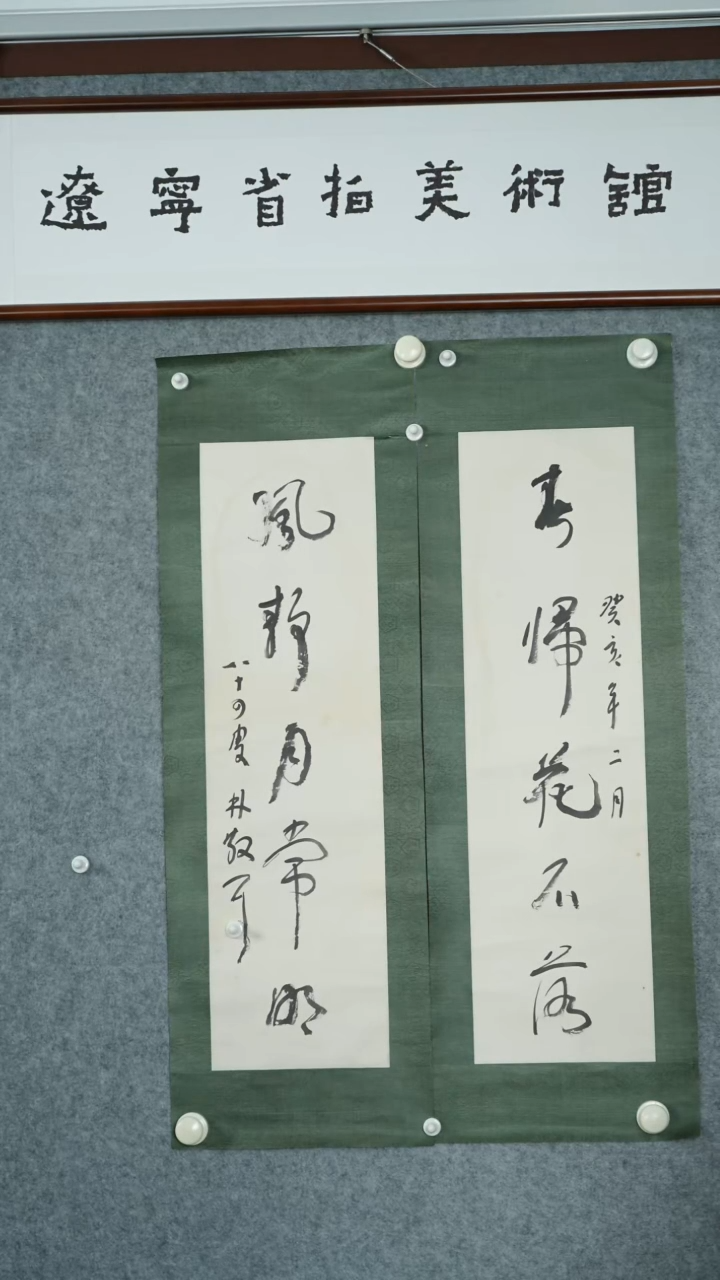 遼寧省拍美術館
癸亥年二月
春歸花不落
風靜月常明
八十四叟 朴敬軍